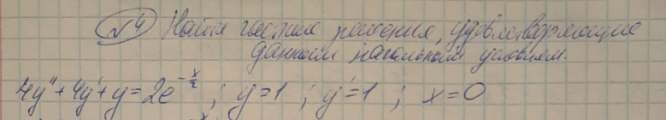 №4 Найти частные решения, удовлетворяющие
данным начальным условиям.
4y'' + 4y' + y = 2e^{-\frac{x}{2}} ; y=1 ; y'=1 ; x=0